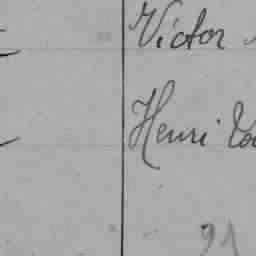 Victor
Henri
91